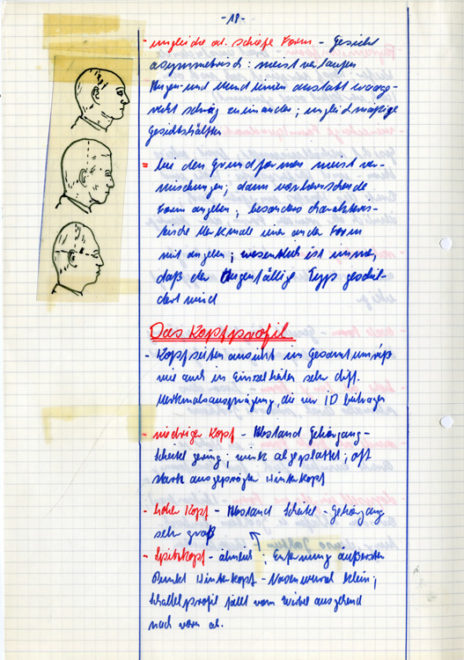 - 18 -
- ungleiche od. schiefe Form - Gesicht
asymmetrisch; meist verlaufen
Augen- und Mundlinien anstatt waage-
recht schräg zueinander; ungleichmäßige
Gesichtshälften
- bei den Grundformen meist Ver-
mischungen; dann vorherrschende
Form angeben; besonders charakteris-
tische Merkmale der anderen Form
mit angeben; wesentlich ist immer,
daß der augenfällige Typ geschil-
dert wird
Das Kopfprofil
- Kopfseitenansicht im Gesamtumriß
wie auch in Einzelheiten sehr diff.
Merkmalsausprägung, die zur ID beitragen
- niedriger Kopf - Abstand Gehörgang-
Scheitel gering; wirkt abgeplattet; oft
stark ausgeprägter Hinterkopf
- hoher Kopf - Abstand Scheitel - Gehörgang
sehr groß
- Spitzkopf - ähnlich; Entfernung äußerster
Punkt Hinterkopf - Nasenwurzel klein;
Schädelprofil fällt vom Wirbel ausgehend
nach vorn ab.